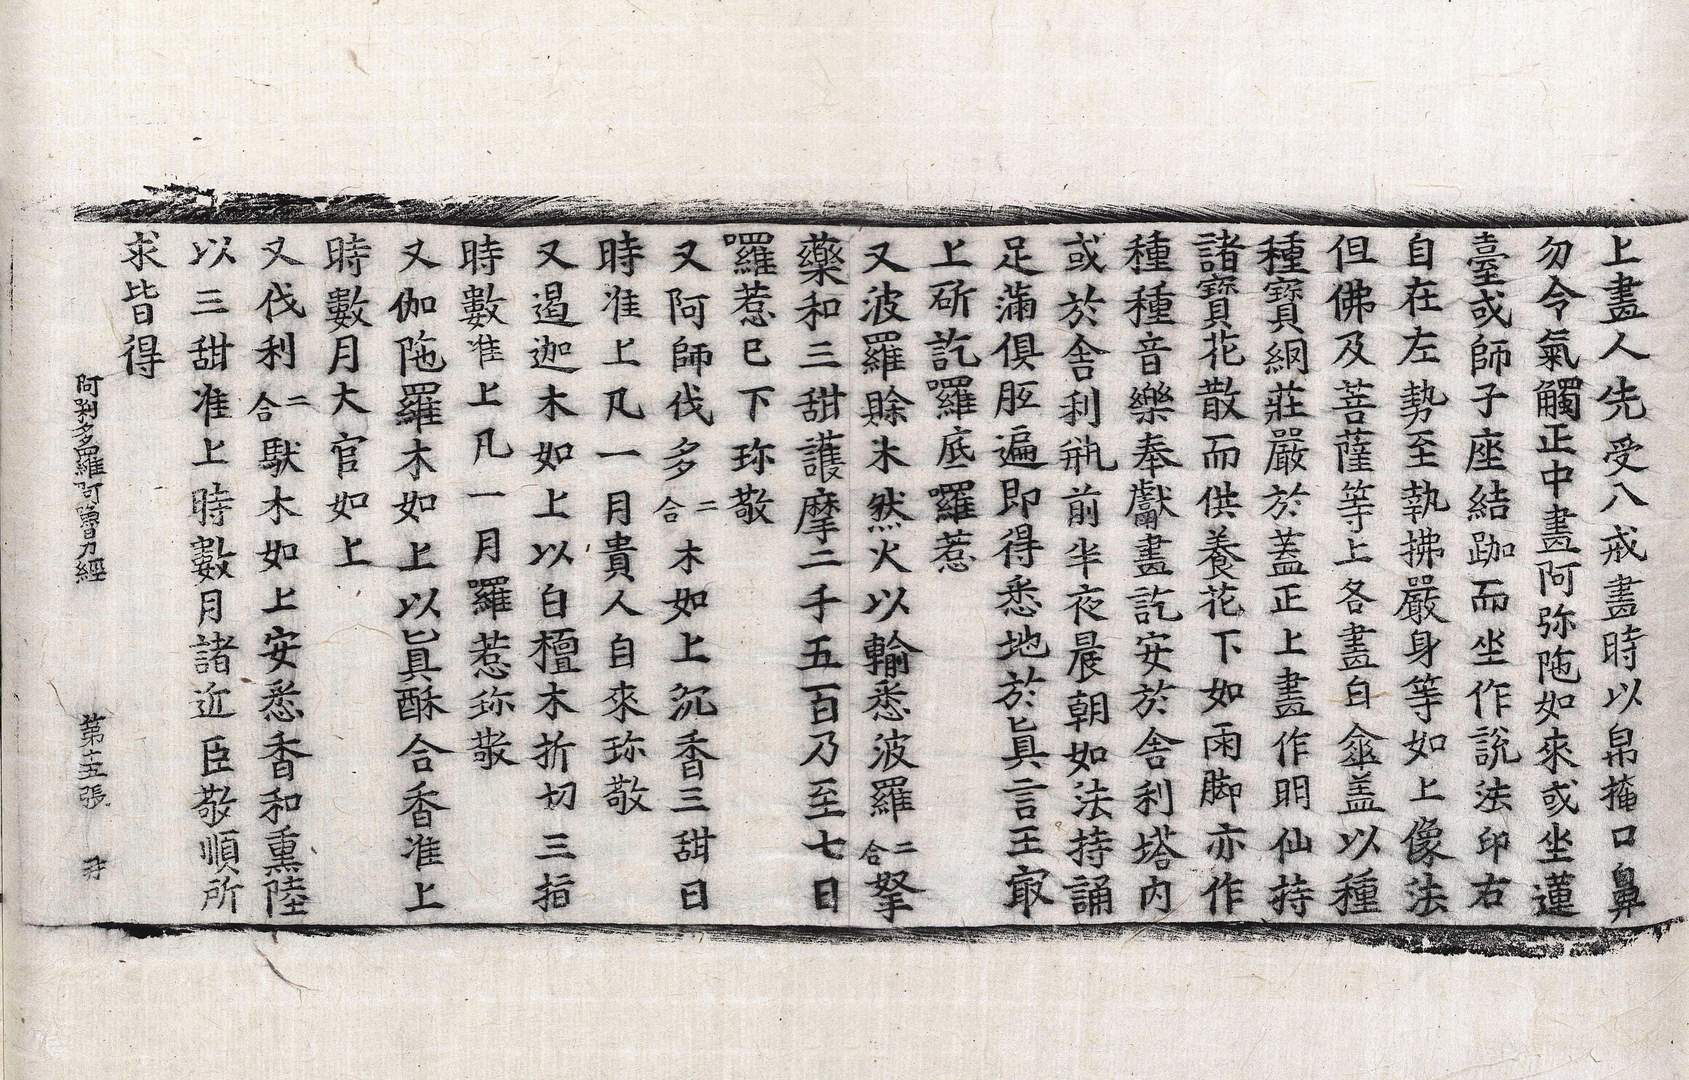 上畫人先受八戒畫時以帛掩口鼻
勿令氣觸正中畫阿弥陁如來或坐蓮
臺或師子座結跏而坐作說法印右
自在左勢至執拂嚴身等如上像法
但佛及菩薩等上各畫白傘盖以種
種寶網莊嚴於蓋正上畫作明仙持
諸寶花散而供養花下如雨脚亦作
種種音樂奉獻畫訖安於舍利塔內
或於舍利瓶前半夜晨朝如法持誦
足滿俱胝遍即得悉地於眞言王㝡
上斫訖囉底囉惹
又波羅賒木然火以輸悉波羅二合拏
藥和三甜護摩二千五百乃至七日
囉惹已下珎敬
又阿師伐多二合木如上沉香三甜日
時准上凡一月貴人自來珎敬
又遏迦木如上以白檀木折切三指
時數准上凡一月囉惹珎敬
又伽陁羅木如上以眞酥合香准上
時數月大官如上
又伐利二合馱木如上安悉香和熏陸
以三甜准上時數月諸近臣敬順所
求皆得
阿唎多羅阿嚕力經　第十五張